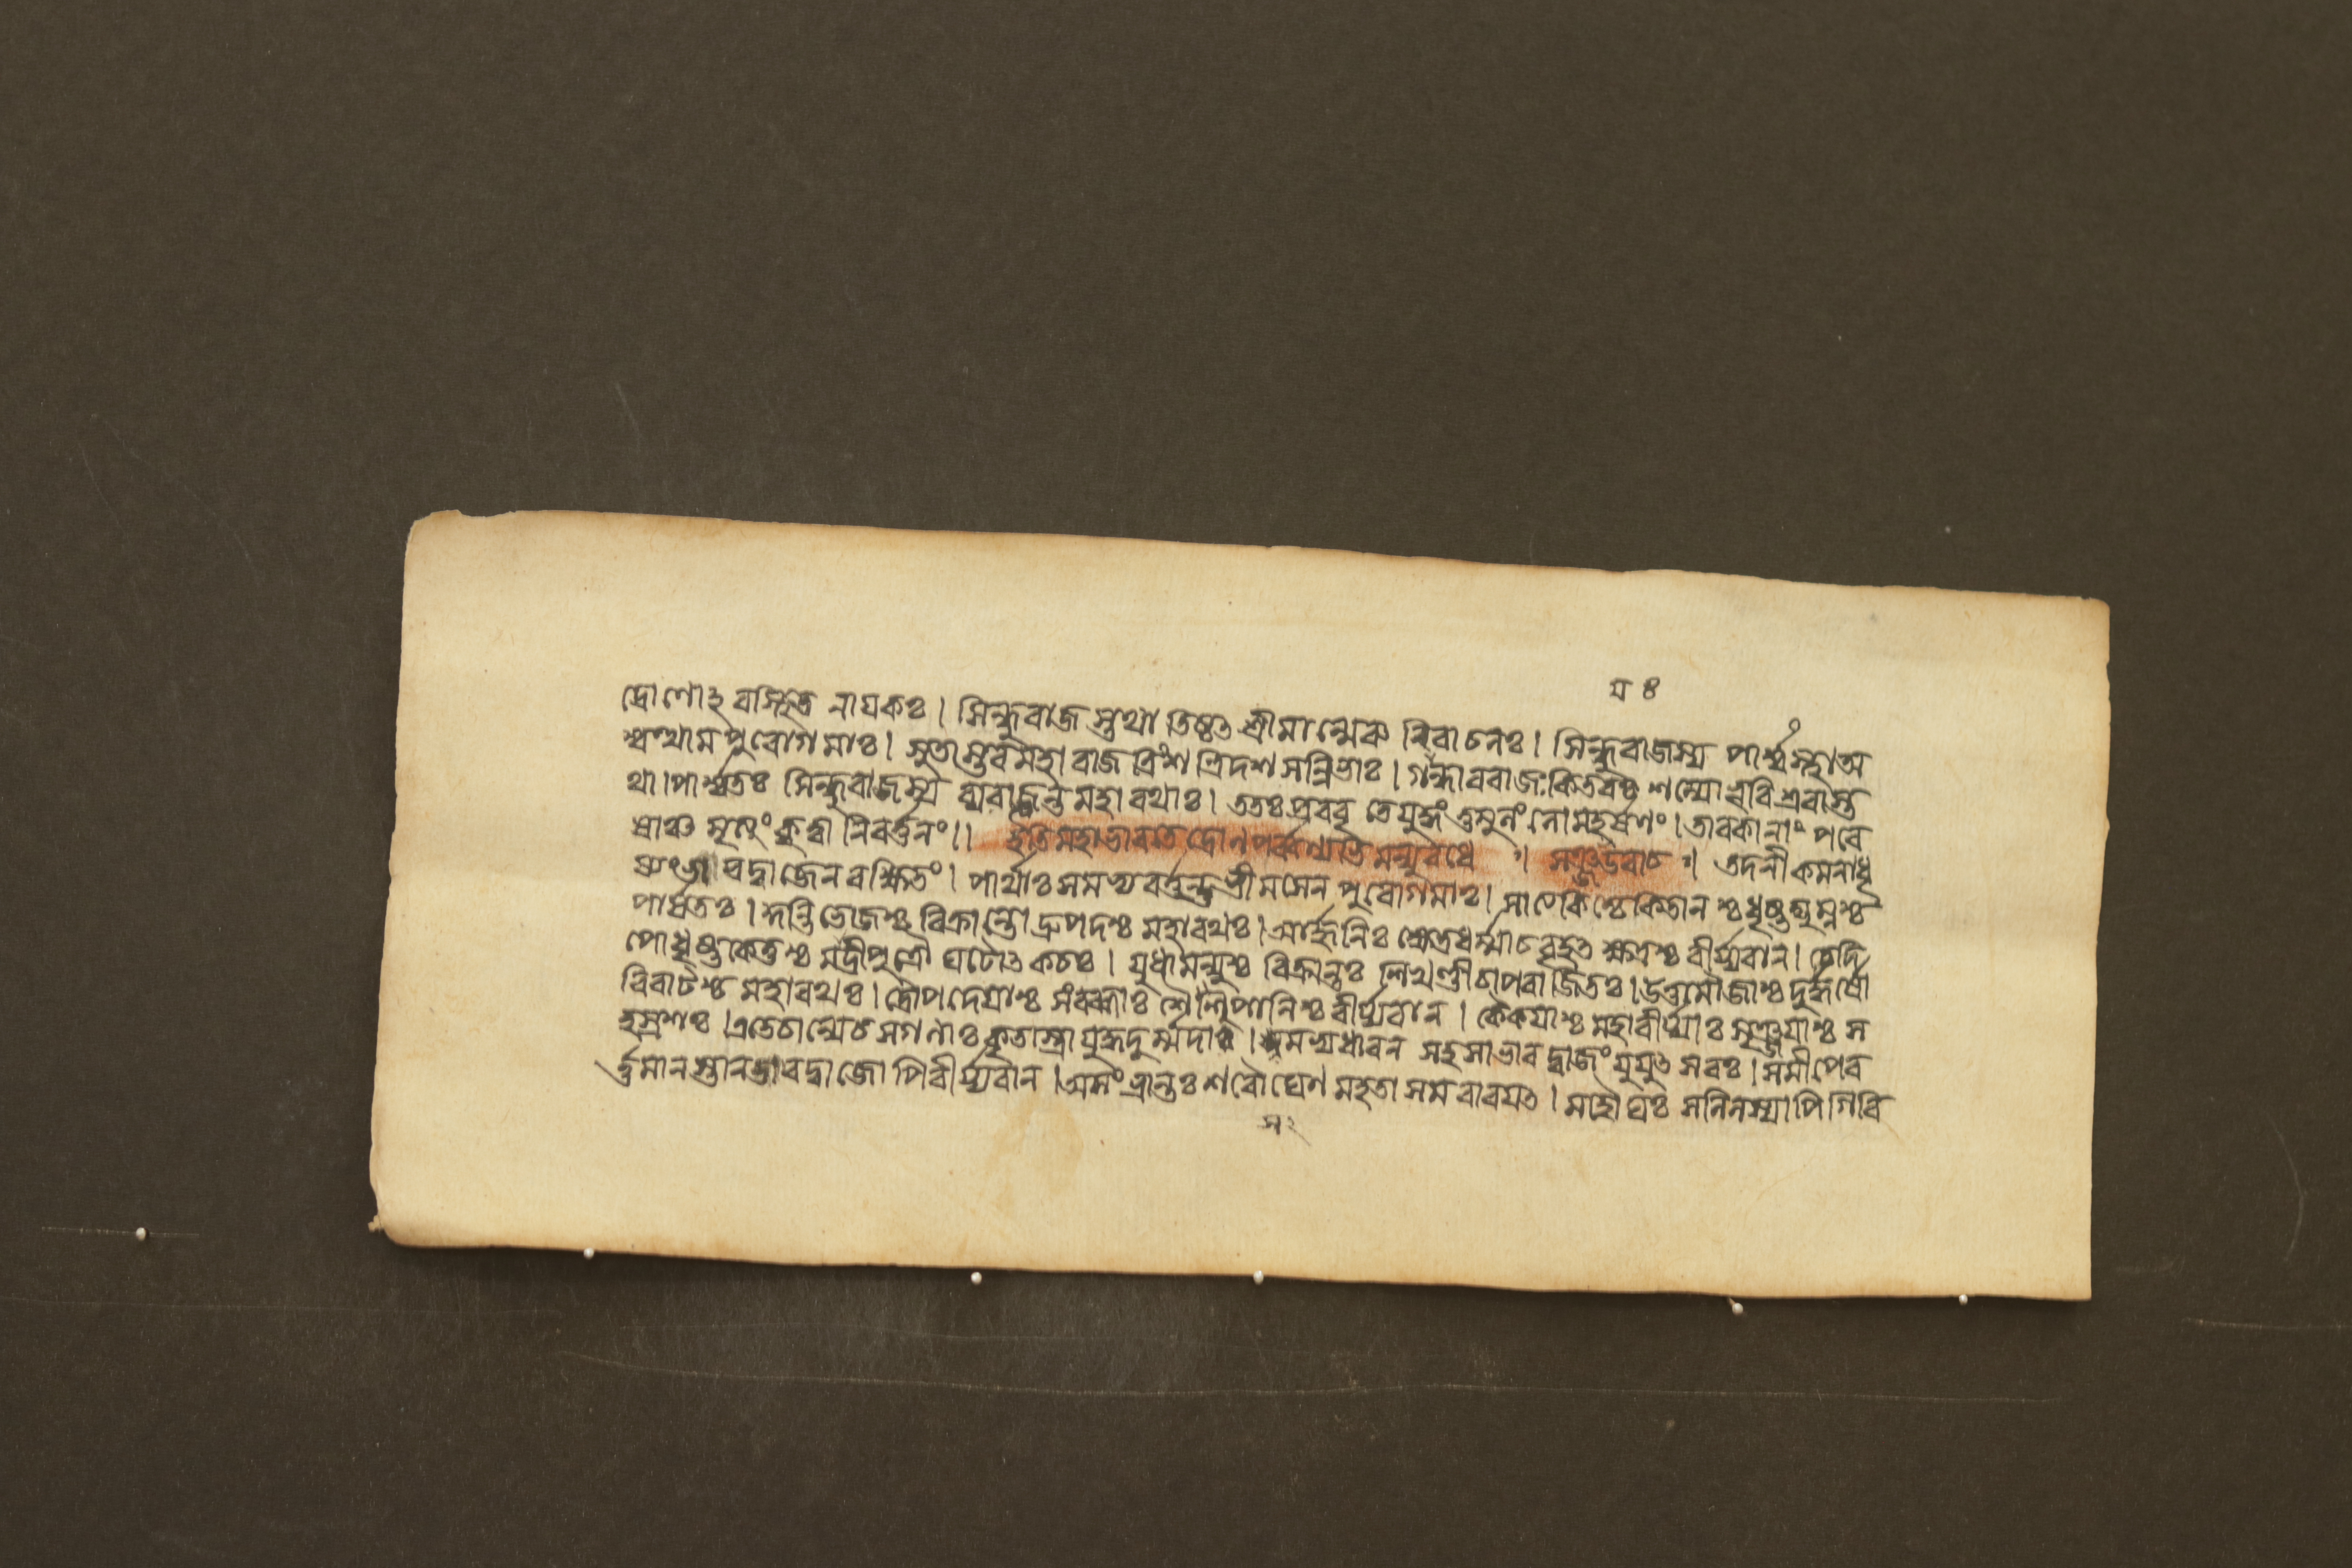 য ৪
দ্রোণোঽবস্থিত নাযকঃ। সিন্ধুবাজ স্তথা তিষ্ঠৎ শ্রীমান্মেৰু বিবাচনঃ। সিন্ধুবাজস্য পার্শ্বস্থাঅ
শ্বত্থাম পুবোগমাঃ। সুতাস্তবমহাবাজ ত্রিংশ ত্রিদশ সন্নিভাঃ। গান্ধাববাজঃকিতবশ্চ শল্যো ভূবিশ্রবাস্ত
থা। পার্শ্বতঃ সিন্ধুবাজস্য ব্যবাজন্ত মহাবথাঃ। ততঃ প্রববৃতে যুদ্ধং তুমুলং লোমহর্ষণং। তাবকানাং পবে
ষাঞ্চ মৃত্যুং কৃত্বা নিবর্ত্তনং॥ ইতি মহাভাবতে দ্রোণপর্ব্বণ্যভিমন্যুবধে ॥ সঞ্জয়উবাচ ॥ তদনীকমনাধৃ
ষ্যং ভাবদ্বাজেন বক্ষিতং। পার্থাঃ সমভ্যবর্ত্তন্ত ভীমসেন পুবোগমাঃ। সাত্যকিশ্চেকিতানশ্চ ধৃষ্টদ্যুম্নশ্চ
পার্ষতঃ। কুন্তিভোজশ্চ বিক্রান্তো দ্রুপদশ্চ মহাবথঃ। আর্জ্জুনিঃ ক্ষেত্রধর্ম্মাচ বৃহৎ ক্ষত্রশ্চ বীর্য্যবান। চেদি
পো ধৃষ্টকেতুশ্চ মাদ্রীপুত্রৌ ঘটোৎকচঃ। যুধামন্যুশ্চ বিক্রান্তঃ শিখণ্ডীচাপবাজিতঃ। উত্তমৌজাশ্চ দুর্দ্ধর্ষো
বিবাটশ্চ মহাবথঃ। দ্রৌপদেযাশ্চ সংবব্ধাঃ শৈশুপালিশ্চ বীর্য্যবান। কেকযাশ্চ মহাবীর্য্যাঃ সৃঞ্জযাশ্চ স
হস্রশঃ। এতেচান্যেচ সগণাঃ কৃতাস্ত্রা যুদ্ধদুর্ম্মদাঃ। সমভ্যধাবন সহসা ভাবদ্বাজং যুযুৎসবঃ। সমীপেব
র্ত্তমান স্তান ভাবদ্বাজো পিবীর্য্যবান। অসংভ্রান্তঃ শবৌঘেণ মহতা সমবাবযৎ। মহৌঘঃ সলিলস্যাপি গিবি